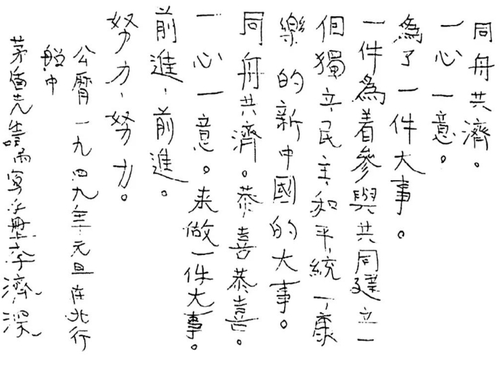 同舟共濟。
一心一意。
為了一件大事。
一件為着參與共同建立一
個獨立民主和平統一康
樂的新中國的大事。
同舟共濟。恭喜恭喜。
一心一意。来做一件大事。
前進，前進。
努力，努力。
公曆一九四九年元旦在北行
船中
茅盾先生嘱写手冊李濟深